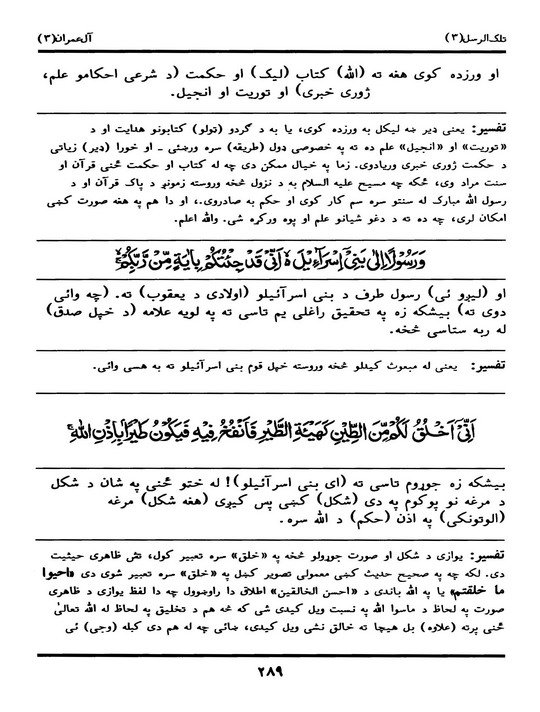 تلک الرسل (۳)
آل عمران (۳)
او ورزده کوی هغه ته (الله) کتاب (لیک) او حکمت (د شرعی احکامو علم،
ژوری خبری) او توریت او انجیل.
تفسیر: یعنی ډیر ښه لیکل به ورزده کوی، یا به د گردو (تولو) کتابونو هدایت او د
«توریت» او «انجیل» علم ده ته په خصوصی ډول (طریقه) سره ورښئی ـ او خورا (ډیر) زیاتی
د حکمت ژوری خبری وریادوی. زما په خیال ممکن دی چه له کتاب او حکمت څنی قرآن او
سنت مراد وی، ځکه چه مسیح علیه السلام به د نزول څخه وروسته زمونږ د پاک قرآن او د
رسول الله مبارک له سنتو سره سم کار کوی او حکم به صادروی، او دا هم په هغه صورت کښی
امکان لری، چه ده ته د دغو شیانو علم او پوه ورکړه شی. والله اعلم.
وَرَسُوْلًا اِلٰى بَنِيْٓ اِسْرَآءِيْلَ ەۙ اَنِّيْ قَدْ جِئْتُكُمْ بِاٰيَةٍ مِّنْ رَّبِّكُمْ ۙ
او (لیږو ئی) رسول طرف د بنی اسرآئیلو (اولادی د یعقوب) ته. (چه وائی
دوی ته) بیشکه زه په تحقیق راغلی یم تاسی ته په لویه علامه (د خپل صدق)
له ربه ستاسی څخه.
تفسیر: یعنی له مبعوث کیدلو څخه وروسته خپل قوم بنی اسرآئیلو ته به هسی وائی.
اَنِّيْٓ اَخْلُقُ لَكُمْ مِّنَ الطِّيْنِ كَهَيْـَٔةِ الطَّيْرِ فَاَنْفُخُ فِيْهِ فَيَكُوْنُ طَيْرًۢا بِاِذْنِ اللّٰهِ ۚ
بیشکه زه جوړوم تاسی ته (ای بنی اسرآئیلو)! له ختو څنی په شان د شکل
د مرغه نو پوکوم په دی (شکل) کښی پس کیږی (هغه شکل) مرغه
(الوتونکی) په اذن (حکم) د الله سره.
تفسیر: یوازی د شکل او صورت جوړولو څخه په «خلق» سره تعبیر کول، تش ظاهری حیثیت
دی. لکه چه په صحیح حدیث کښی معمولی تصویر کښل په «خلق» سره تعبیر شوی دی «احیوا
ما خلقتم» یا په الله باندی د «احسن الخالقین» اطلاق دا راوښوول چه دا لفظ یوازی د ظاهری
صورت په لحاظ د ماسوا الله په نسبت ویل کیدی شی که څه هم د تخلیق په لحاظ له الله تعالیٰ
څنی پرته (علاوه) بل هیچا ته خالق نشی ویل کیدی، ښائی چه له هم دی کبله (وجی) ئی
۲۸۹